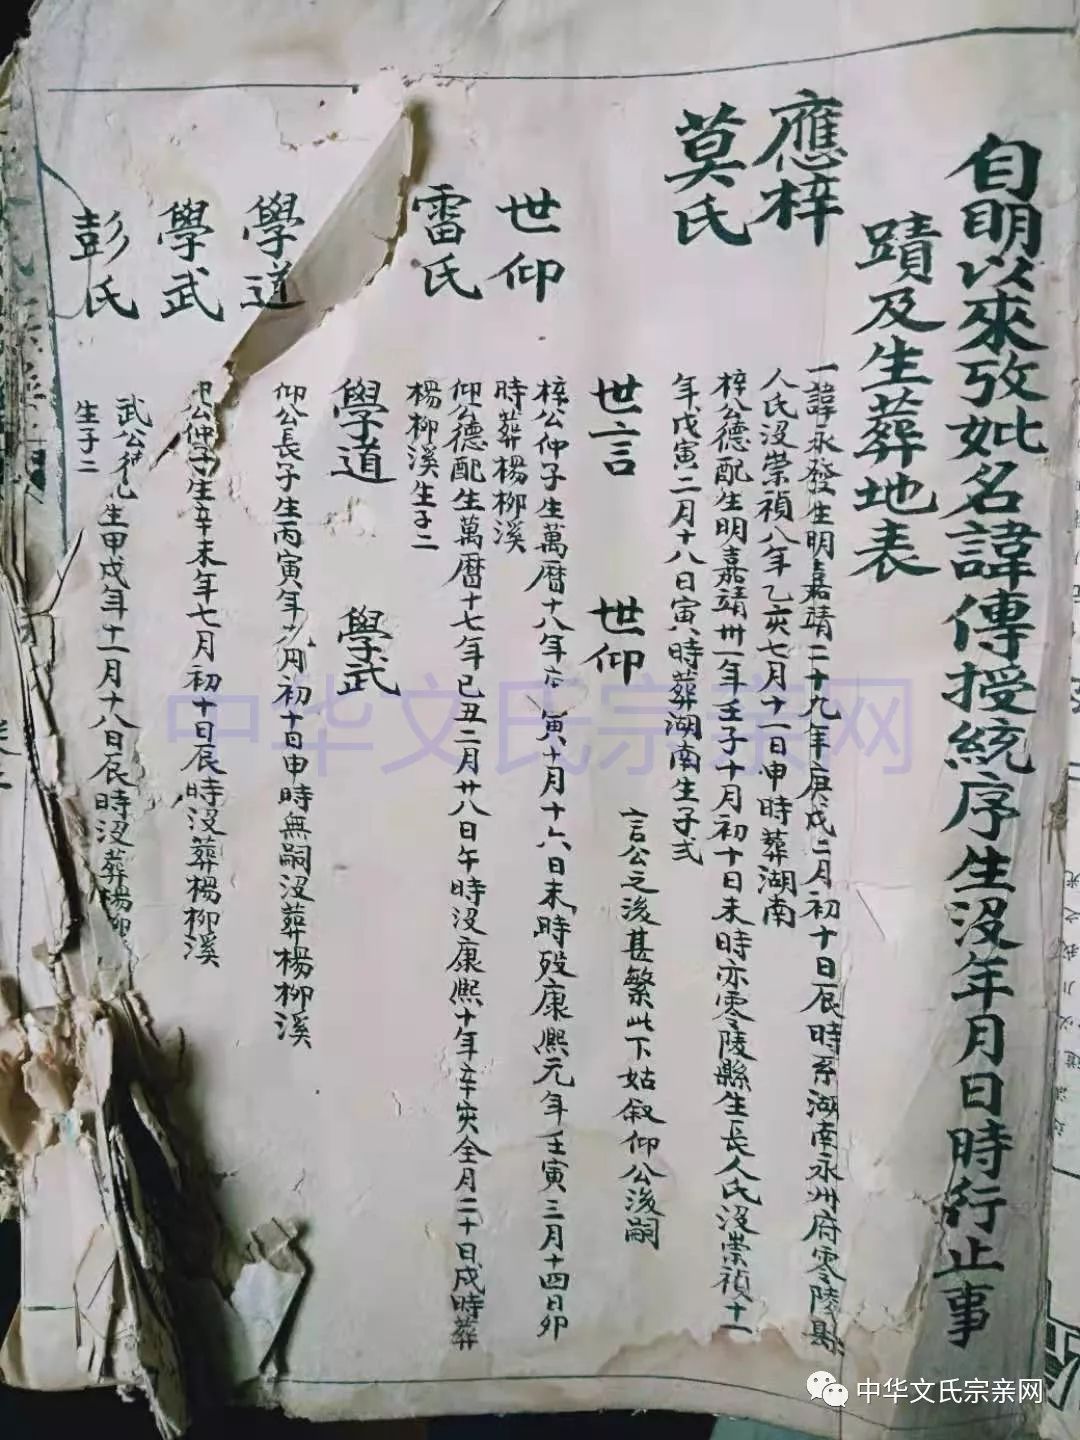 自明以來攷妣名諱傳授統序生沒年月日時行止事
蹟及生葬地表
應梓
一諱永發生明嘉靖二十九年庚戌二月初十日辰時系湖南永州府零陵縣
人氏沒崇禎八年乙亥七月十一日申時葬湖南
莫氏
梓公德配生明嘉靖卅一年壬子十月初十日未時亦零陵縣生長人氏沒崇禎十一
年戊寅二月十八日寅時葬湖南生子弍
世言 世仰
言公之後甚繁此下姑叙仰公後嗣
世仰
梓公仲子生萬曆十八年 寅十月十六日未時歿康熙元年壬寅三月十四日卯
時葬楊柳溪
雷氏
仰公德配生萬曆十七年已丑二月廿八日午時沒康熙十年辛亥全月二十日戌時葬
楊柳溪生子二
學道 學武
學道
仰公長子生丙寅年 月初十日申時無嗣沒葬楊柳溪
學武
仰公仲子生辛未年七月初十日辰時沒葬楊柳溪
彭氏
武公 生甲戌年十一月十八日辰時沒葬楊柳
生子二
中华文氏宗亲网
中华文氏宗亲网